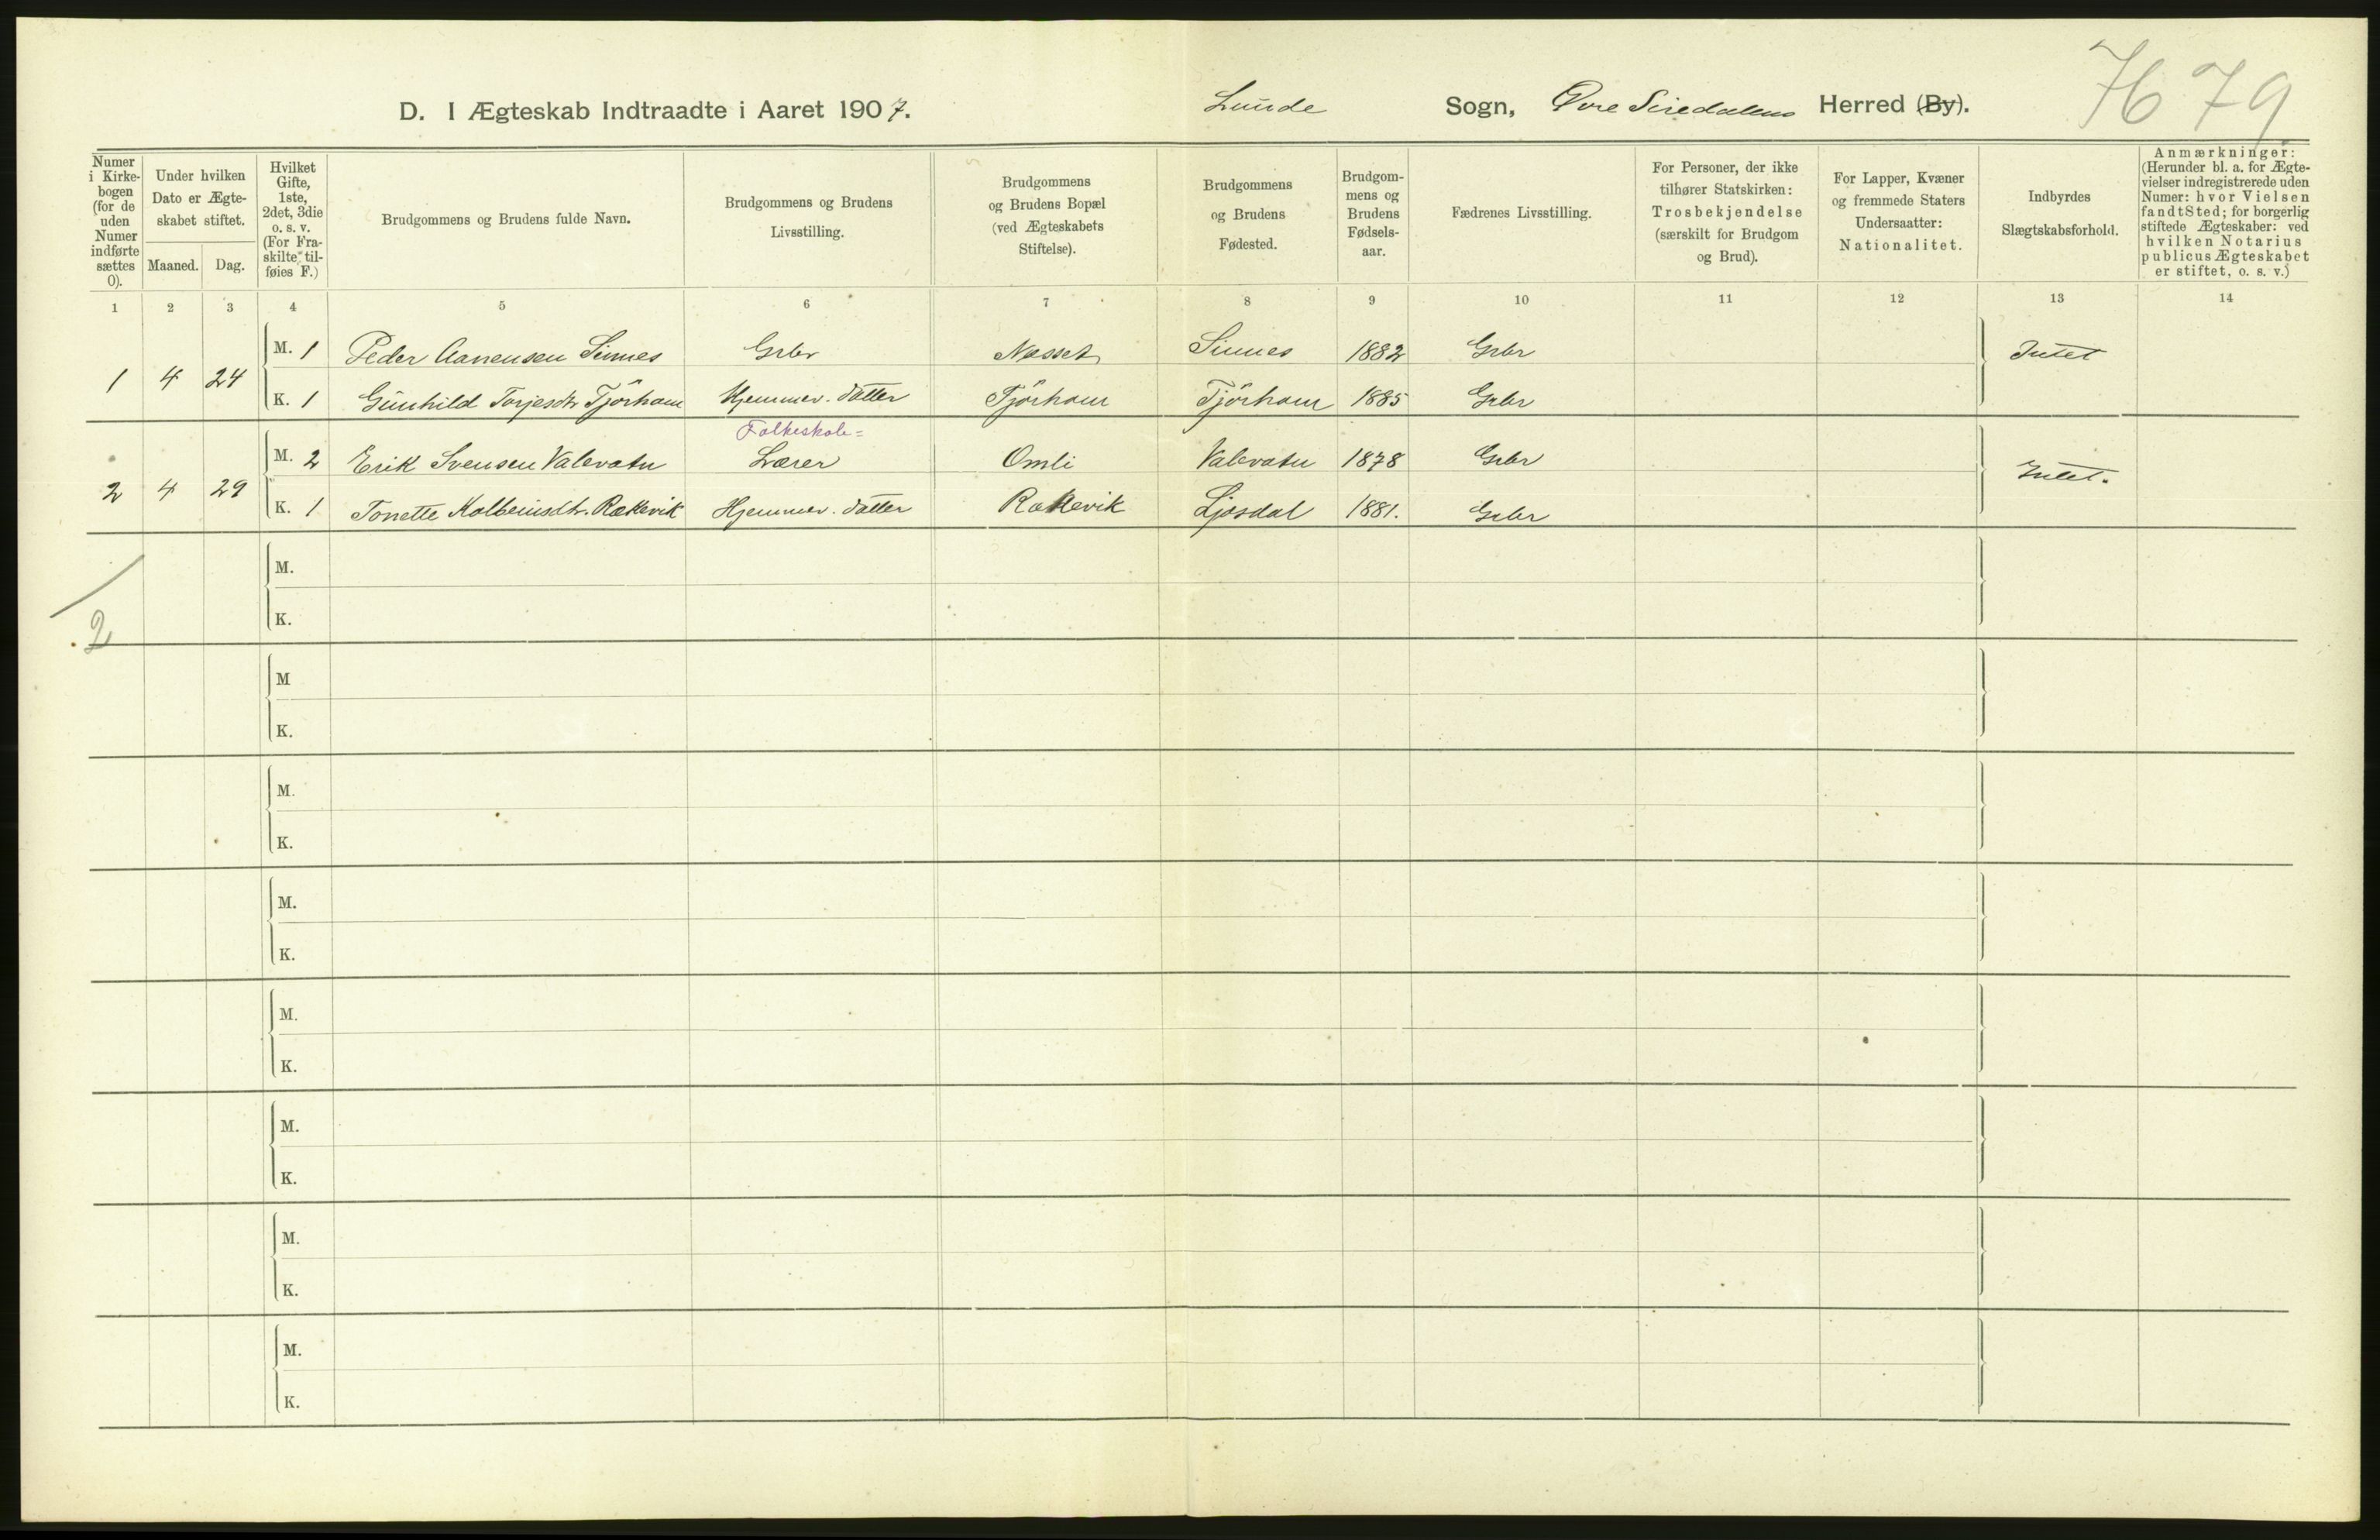 7679
D. I Ægteskab Indtraadte i Aaret 1907. Lunde Sogn, Øvre Siredalens Herred (By).
Numer i Kirkebogen (for de uden Numer indførte sættes 0).
Under hvilken Dato er Ægteskabet stiftet.
Maaned. Dag.
Hvilket Gifte, 1ste, 2det, 3die o. s. v. (For Fraskilte tilføies F.)
Brudgommens og Brudens fulde Navn.
Brudgommens og Brudens Livsstilling.
Brudgommens og Brudens Bopæl (ved Ægteskabets Stiftelse).
Brudgommens og Brudens Fødested.
Brudgommens og Brudens Fødselsaar.
Fædrenes Livsstilling.
For Personer, der ikke tilhører Statskirken: Trosbekjendelse (særskilt for Brudgom og Brud).
For Lapper, Kvæner og fremmede Staters Undersaatter: Nationalitet.
Indbyrdes Slægtskabsforhold.
Anmærkninger: (Herunder bl. a. for Ægtevielser indregistrerede uden Numer: hvor Vielsen fandt Sted; for borgerlig stiftede Ægteskaber: ved hvilken Notarius publicus Ægteskabet er stiftet, o. s. v.)
1 2 3 4 5 6 7 8 9 10 11 12 13 14
M. 1 Peder Aanensen Sinnes Grbr Nesset Sinnes 1882 Grbr Intet
1 4 24
K. 1 Gunhild Torjesdtr Tjörhom Hjemmev. datter Tjörhom Tjörhom 1885 Grbr
Folkeskole=
M. 2 Erik Svensen Valevatn Lærer Omli Valevatn 1878 Grbr
2 4 29 Intet.
K. 1 Tonette Kolbeinsdtr. Rækevik Hjemmev. datter Rækevik Ljosdal 1881. Grbr
M.
K.
2
M
K.
M.
K.
M.
K.
M.
K.
M.
K.
M.
K.
M.
K.